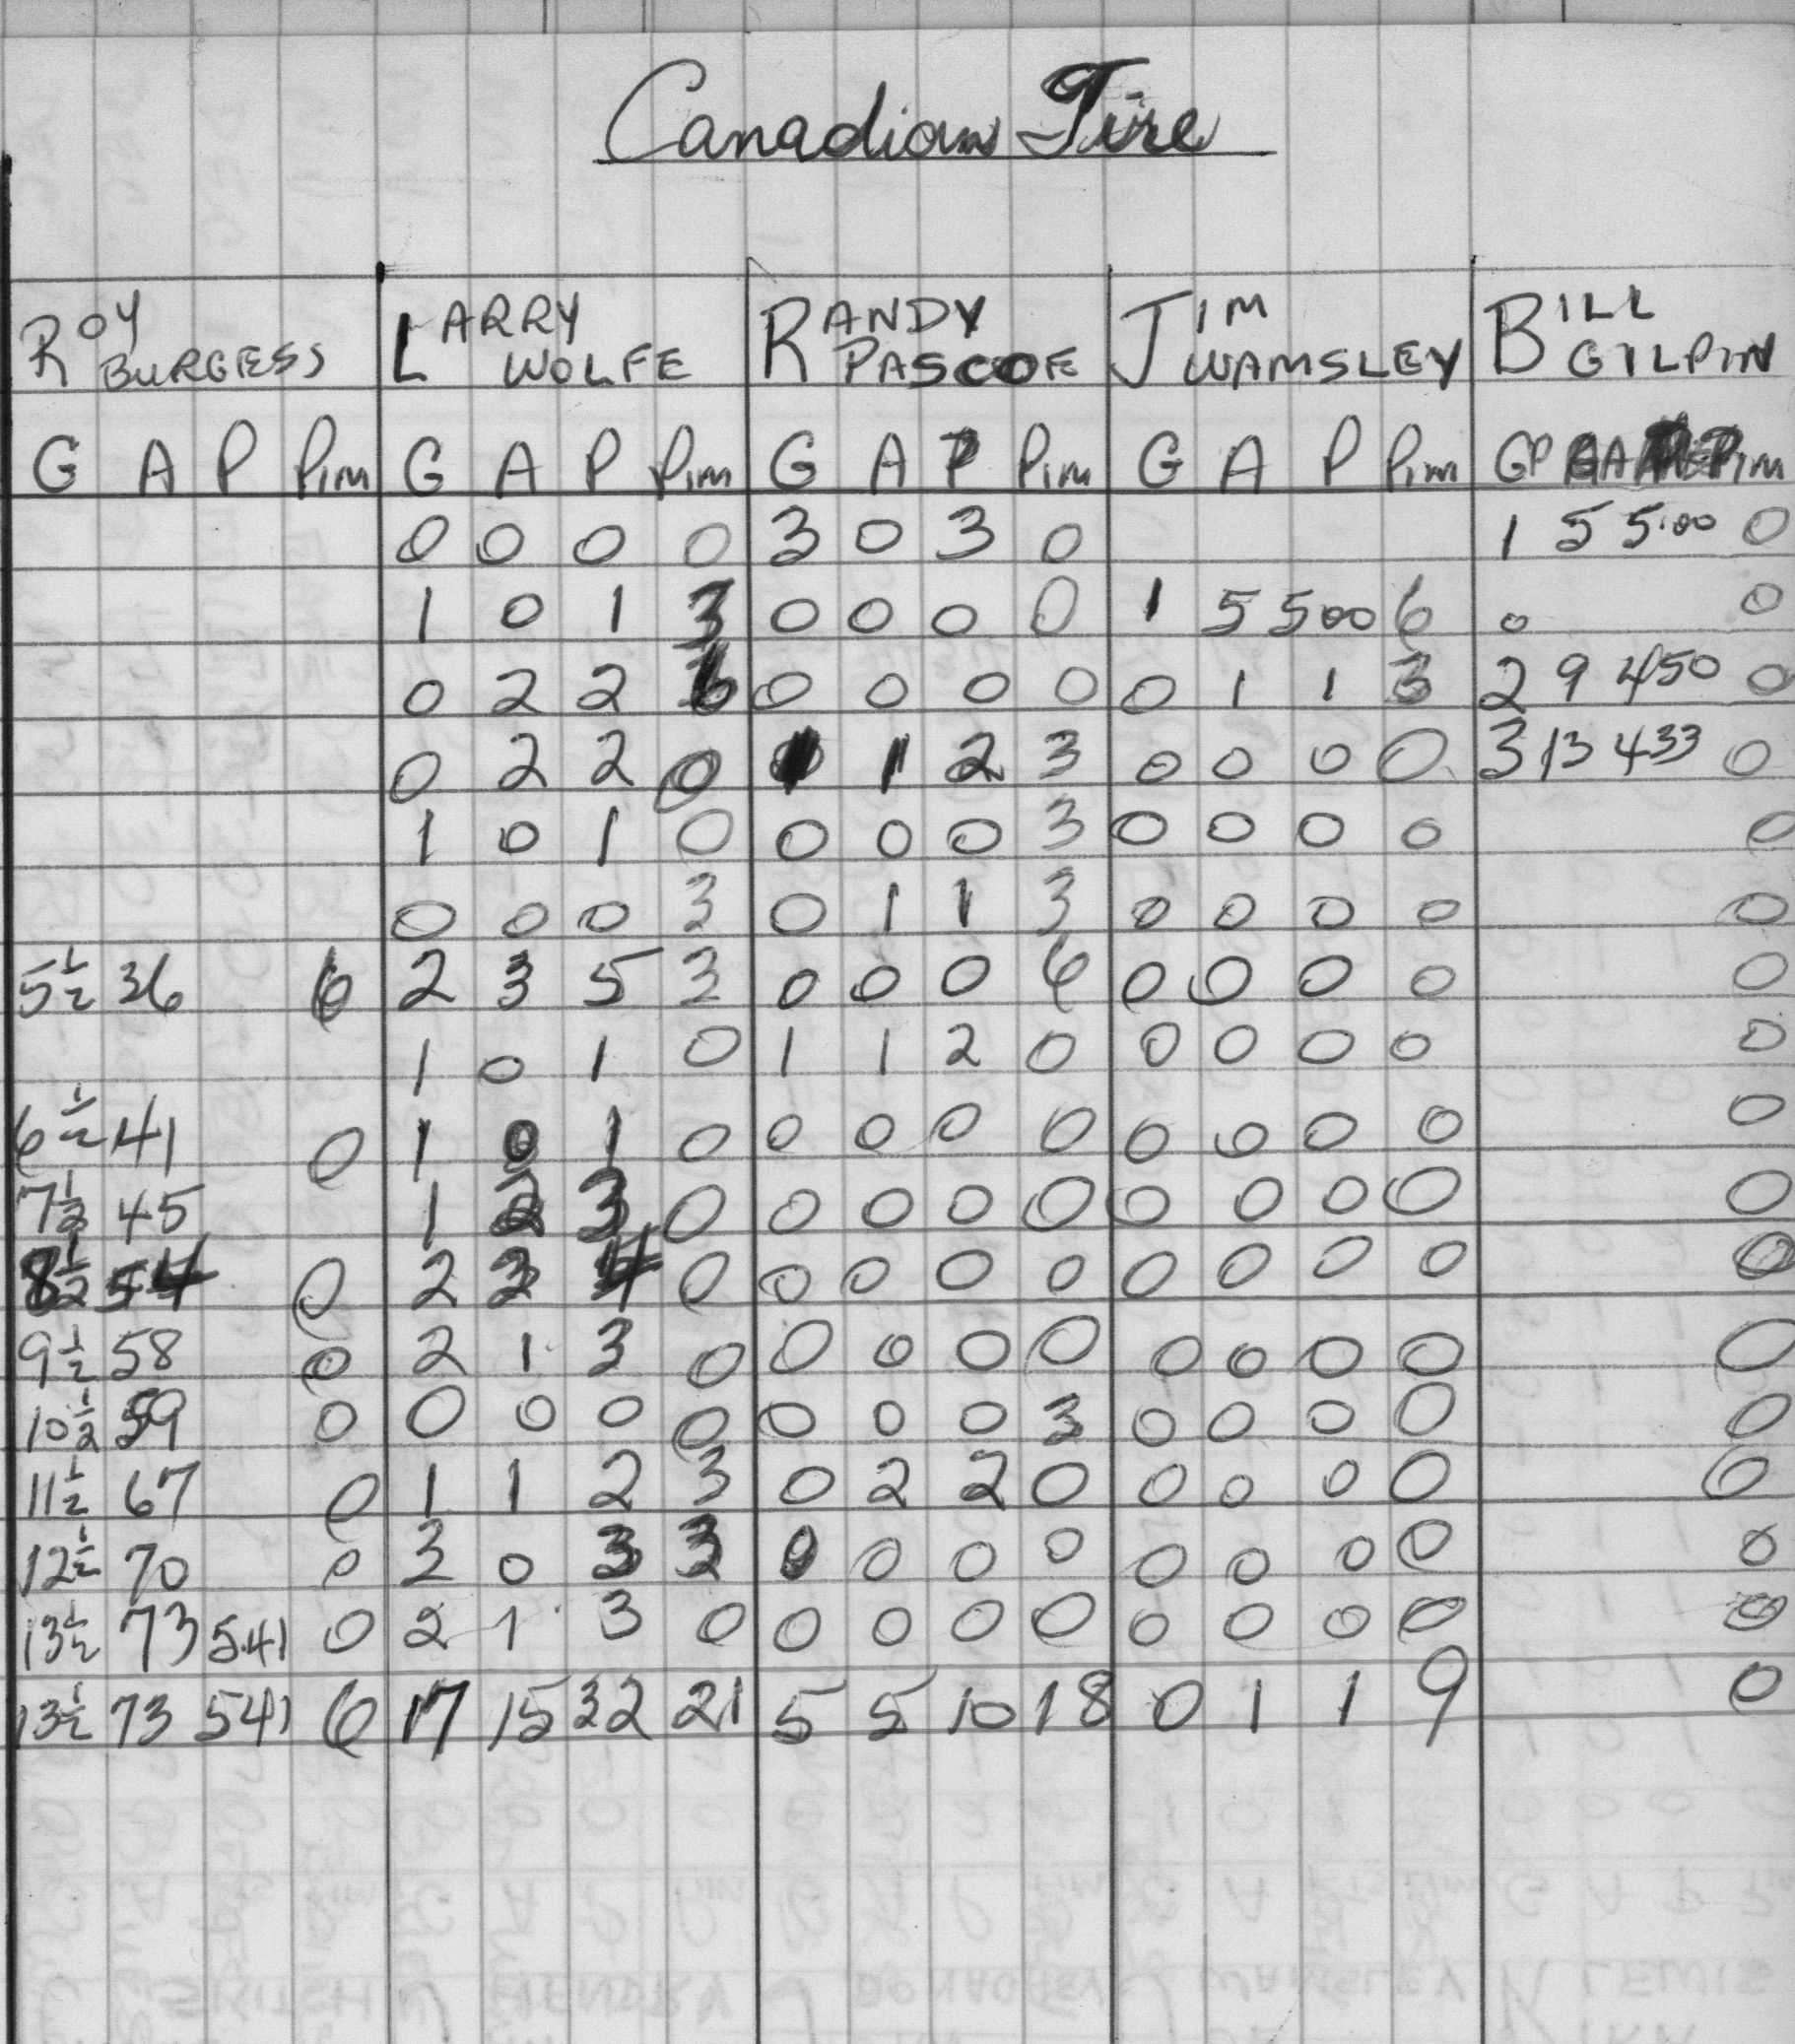 Canadian Tire
ROY BURGESS LARRY WOLFE RANDY PASCOE JIM WAMSLEY BILL GILPIN
G A P Pim G A P Pim G A P Pim G A P Pim GP GA Pim
0 0 0 0 3 0 3 0 1 5 5.00 0
1 0 1 3 0 0 0 0 1 5 500 6 0 0
0 2 2 6 0 0 0 0 0 1 1 3 2 9 450 0
0 2 2 0 1 1 2 3 0 0 0 0 3 13 433 0
1 0 1 0 0 0 0 3 0 0 0 0 0
0 0 0 3 0 1 1 3 0 0 0 0 0
5½ 36 6 2 3 5 3 0 0 0 6 0 0 0 0 0
1 0 1 0 1 1 2 0 0 0 0 0 0
6½ 41 0 1 0 1 0 0 0 0 0 0 0 0 0 0
7½ 45 1 2 3 0 0 0 0 0 0 0 0 0 0
8½ 54 0 2 2 4 0 0 0 0 0 0 0 0 0 0
9½ 58 0 2 1 3 0 0 0 0 0 0 0 0 0 0
10½ 59 0 0 0 0 0 0 0 0 3 0 0 0 0 0
11½ 67 0 1 1 2 3 0 2 2 0 0 0 0 0 0
12½ 70 0 3 0 3 3 0 0 0 0 0 0 0 0 0
13½ 73 5.41 0 2 1 3 0 0 0 0 0 0 0 0 0 0
13½ 73 541 6 17 15 32 21 5 5 10 18 0 1 1 9 0